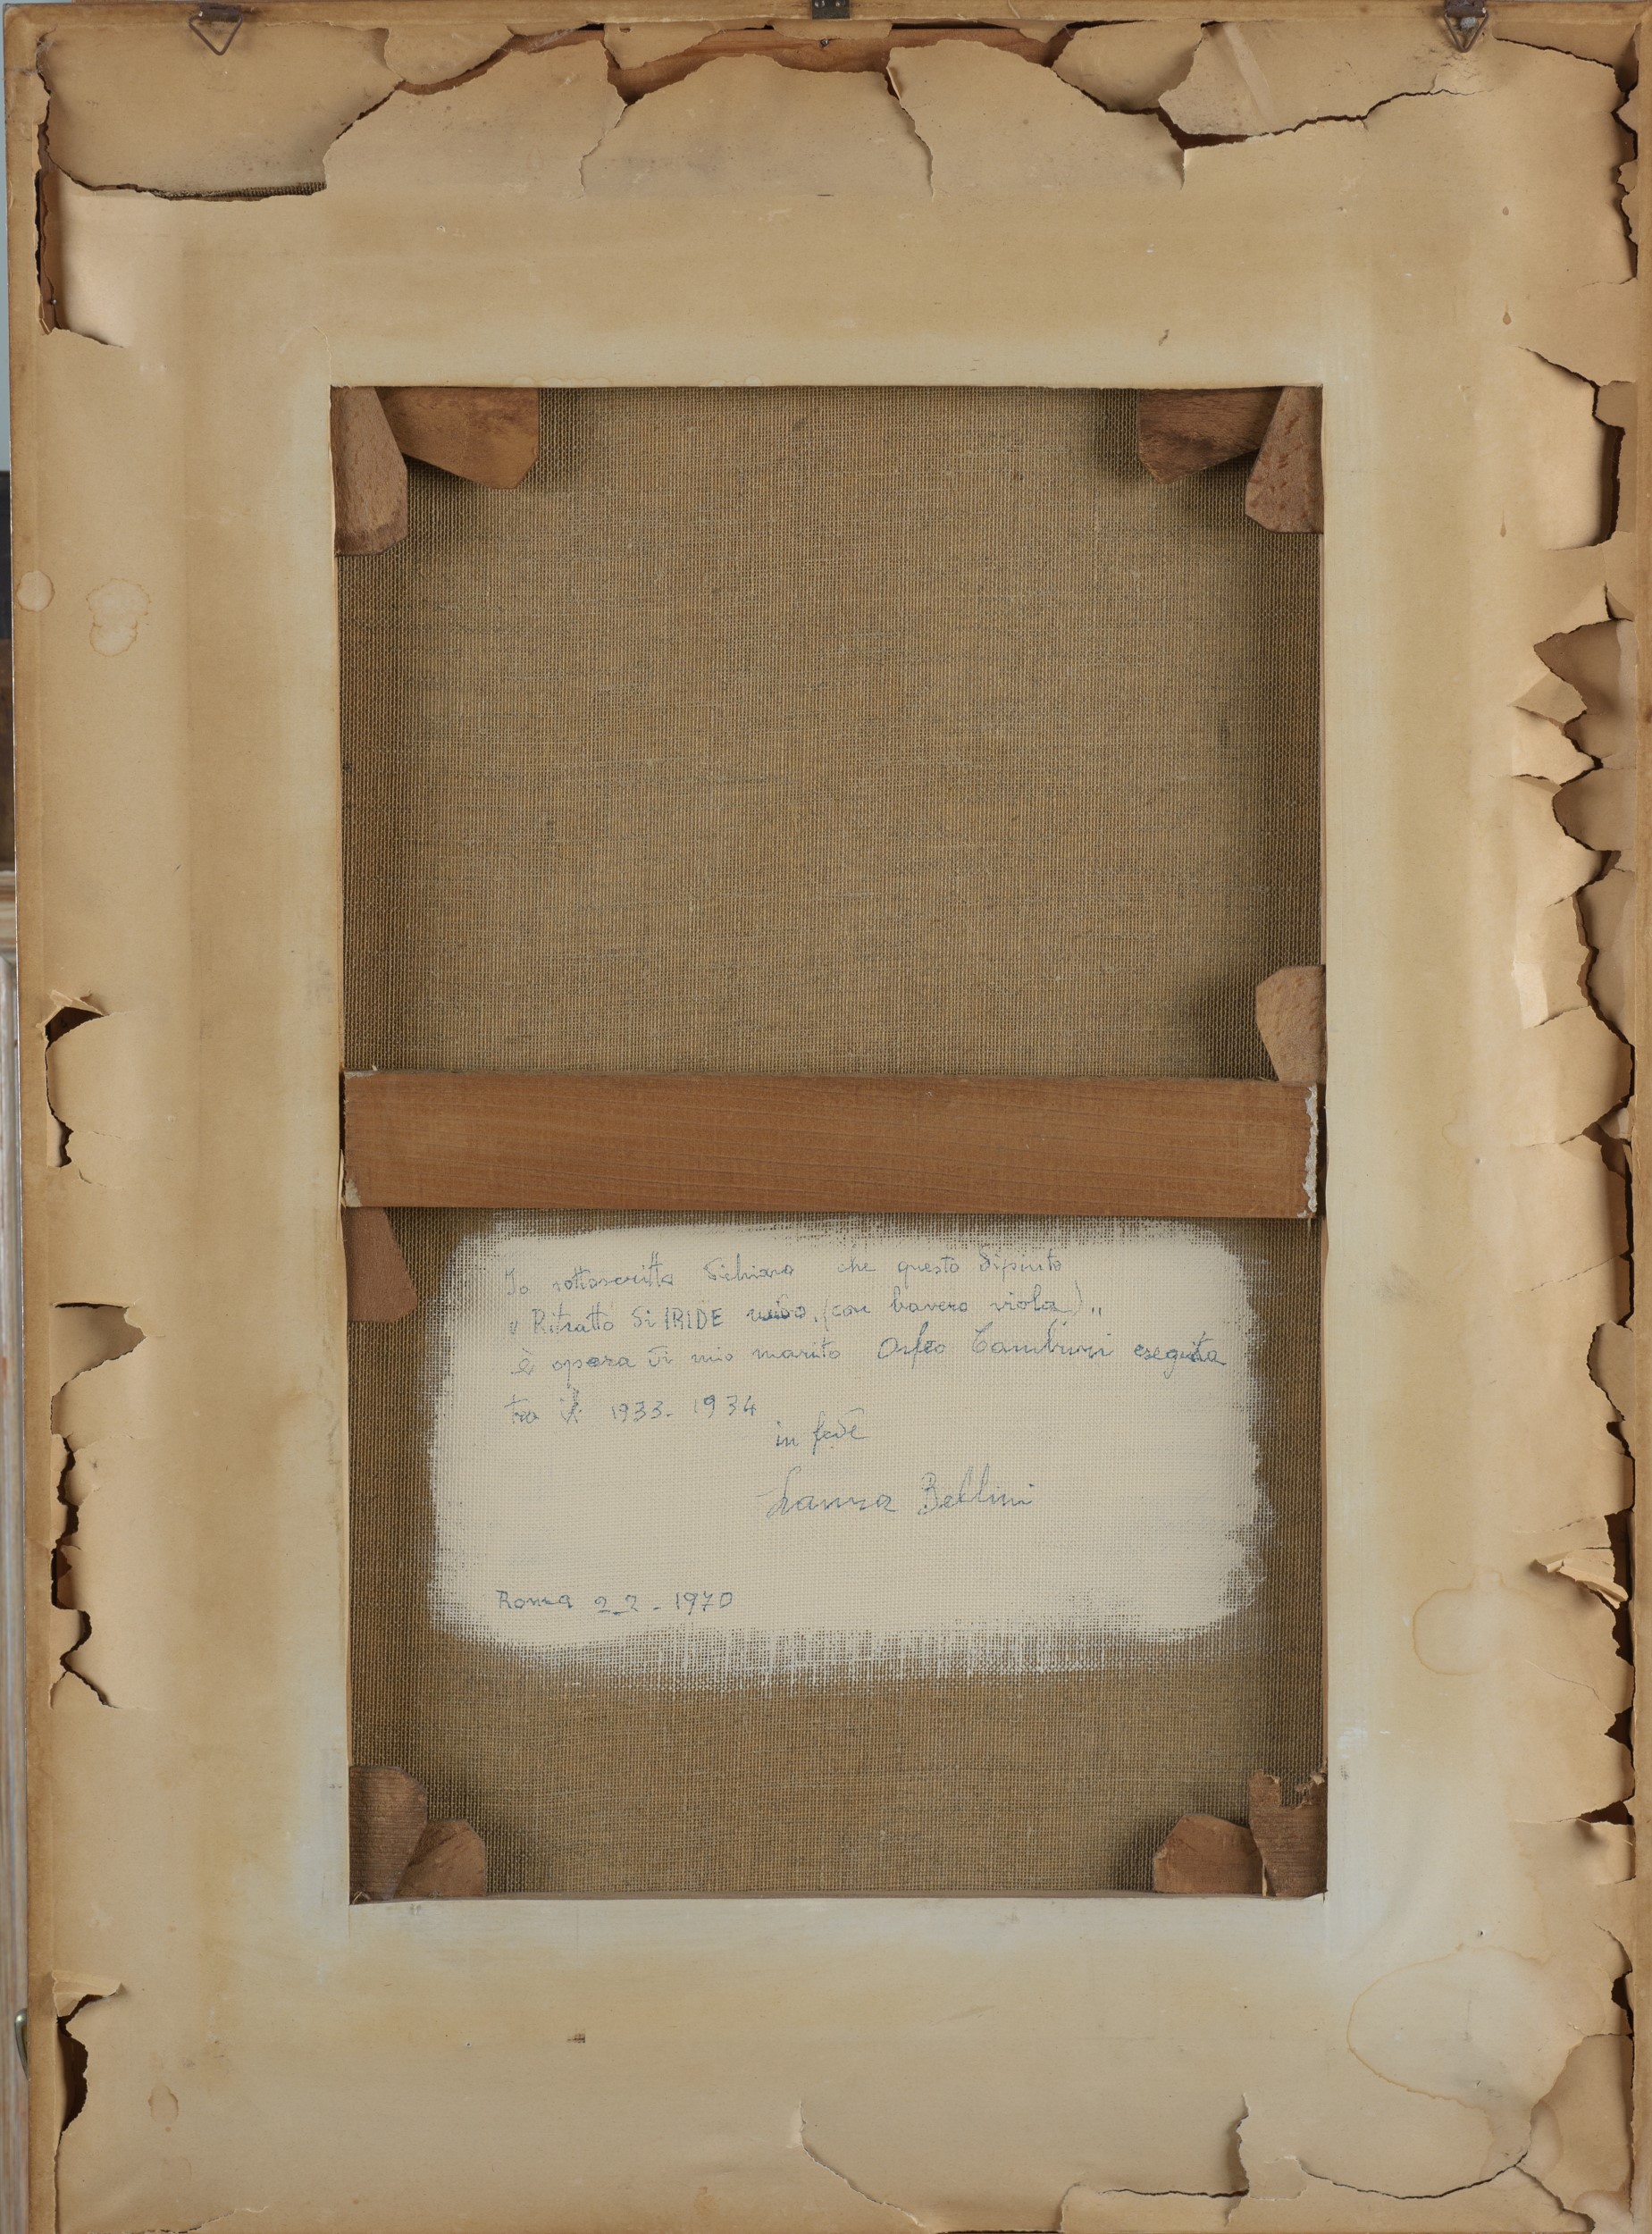 Io sottoscritta dichiaro che questo dipinto
"Ritratto di IRIDE (con bavero viola)"
è opera di mio marito Orfeo Tamburi eseguita
tra il 1933-1934
in fede
Laura Bellini
Roma 2_2_1970